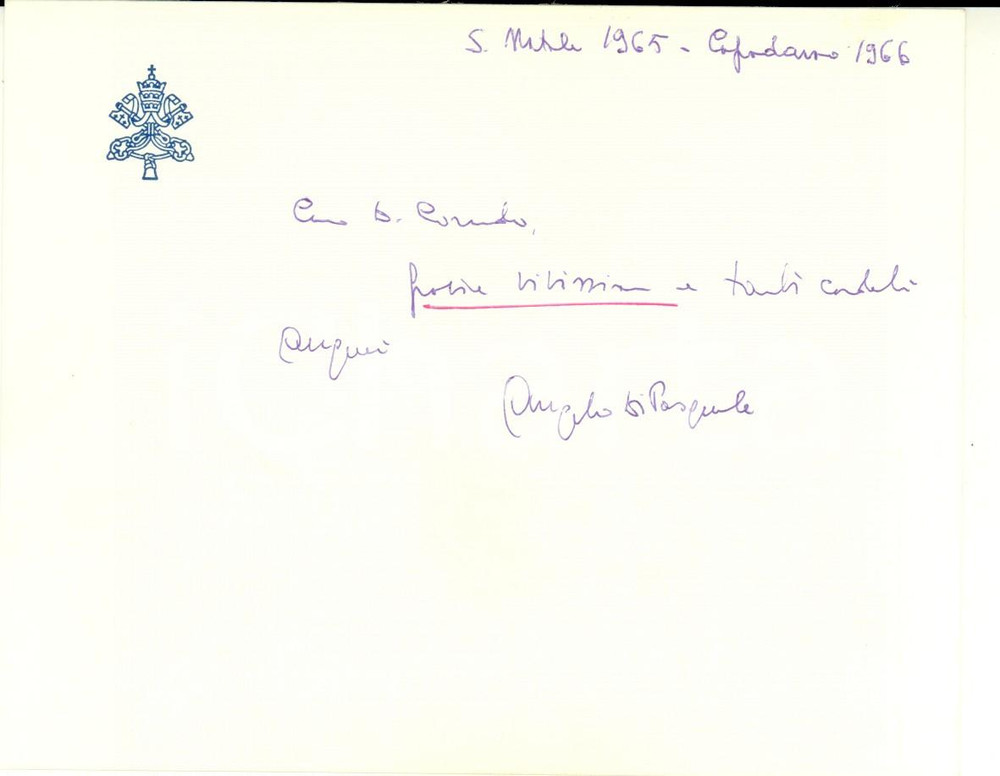 S. Natale 1965 - Capodanno 1966
Caro D. Corrado,
grazie vivissime e tanti cordiali
Auguri
Angelo Di Pasquale